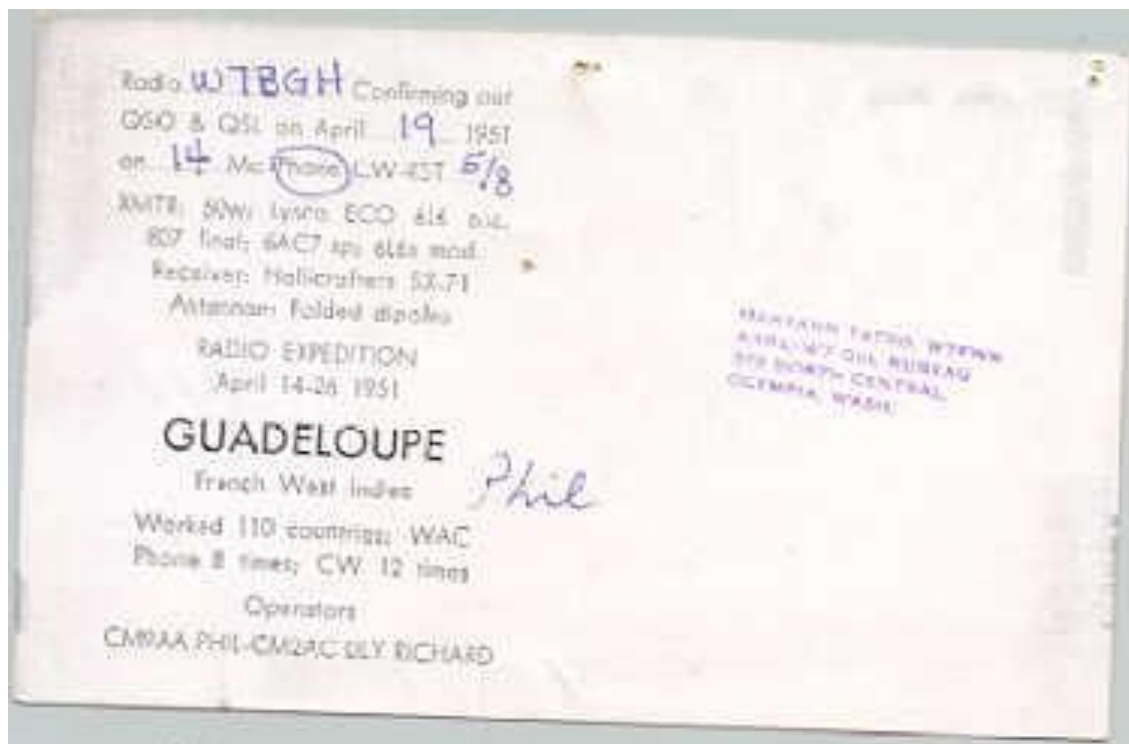 Radio W7BGH Confirming our
QSO & QSL on April 19 1951
on 14 Mc Phone CW-RST 5/8
XMTR: 50w; Lysco ECO 6L6
807 final; 6AC7 sp; 6L6s mod.
Receiver: Hallicrafters SX-71
Antennas: Folded dipoles
RADIO EXPEDITION
April 14-26 1951
GUADELOUPE
French West Indies
Phil
Worked 110 countries; WAC
Phone 8 times; CW 12 times
Operators
CM9AA PHIL-CM2AC RICHARD
QSL BUREAU
NORTH CENTRAL
OLYMPIA, WASH.